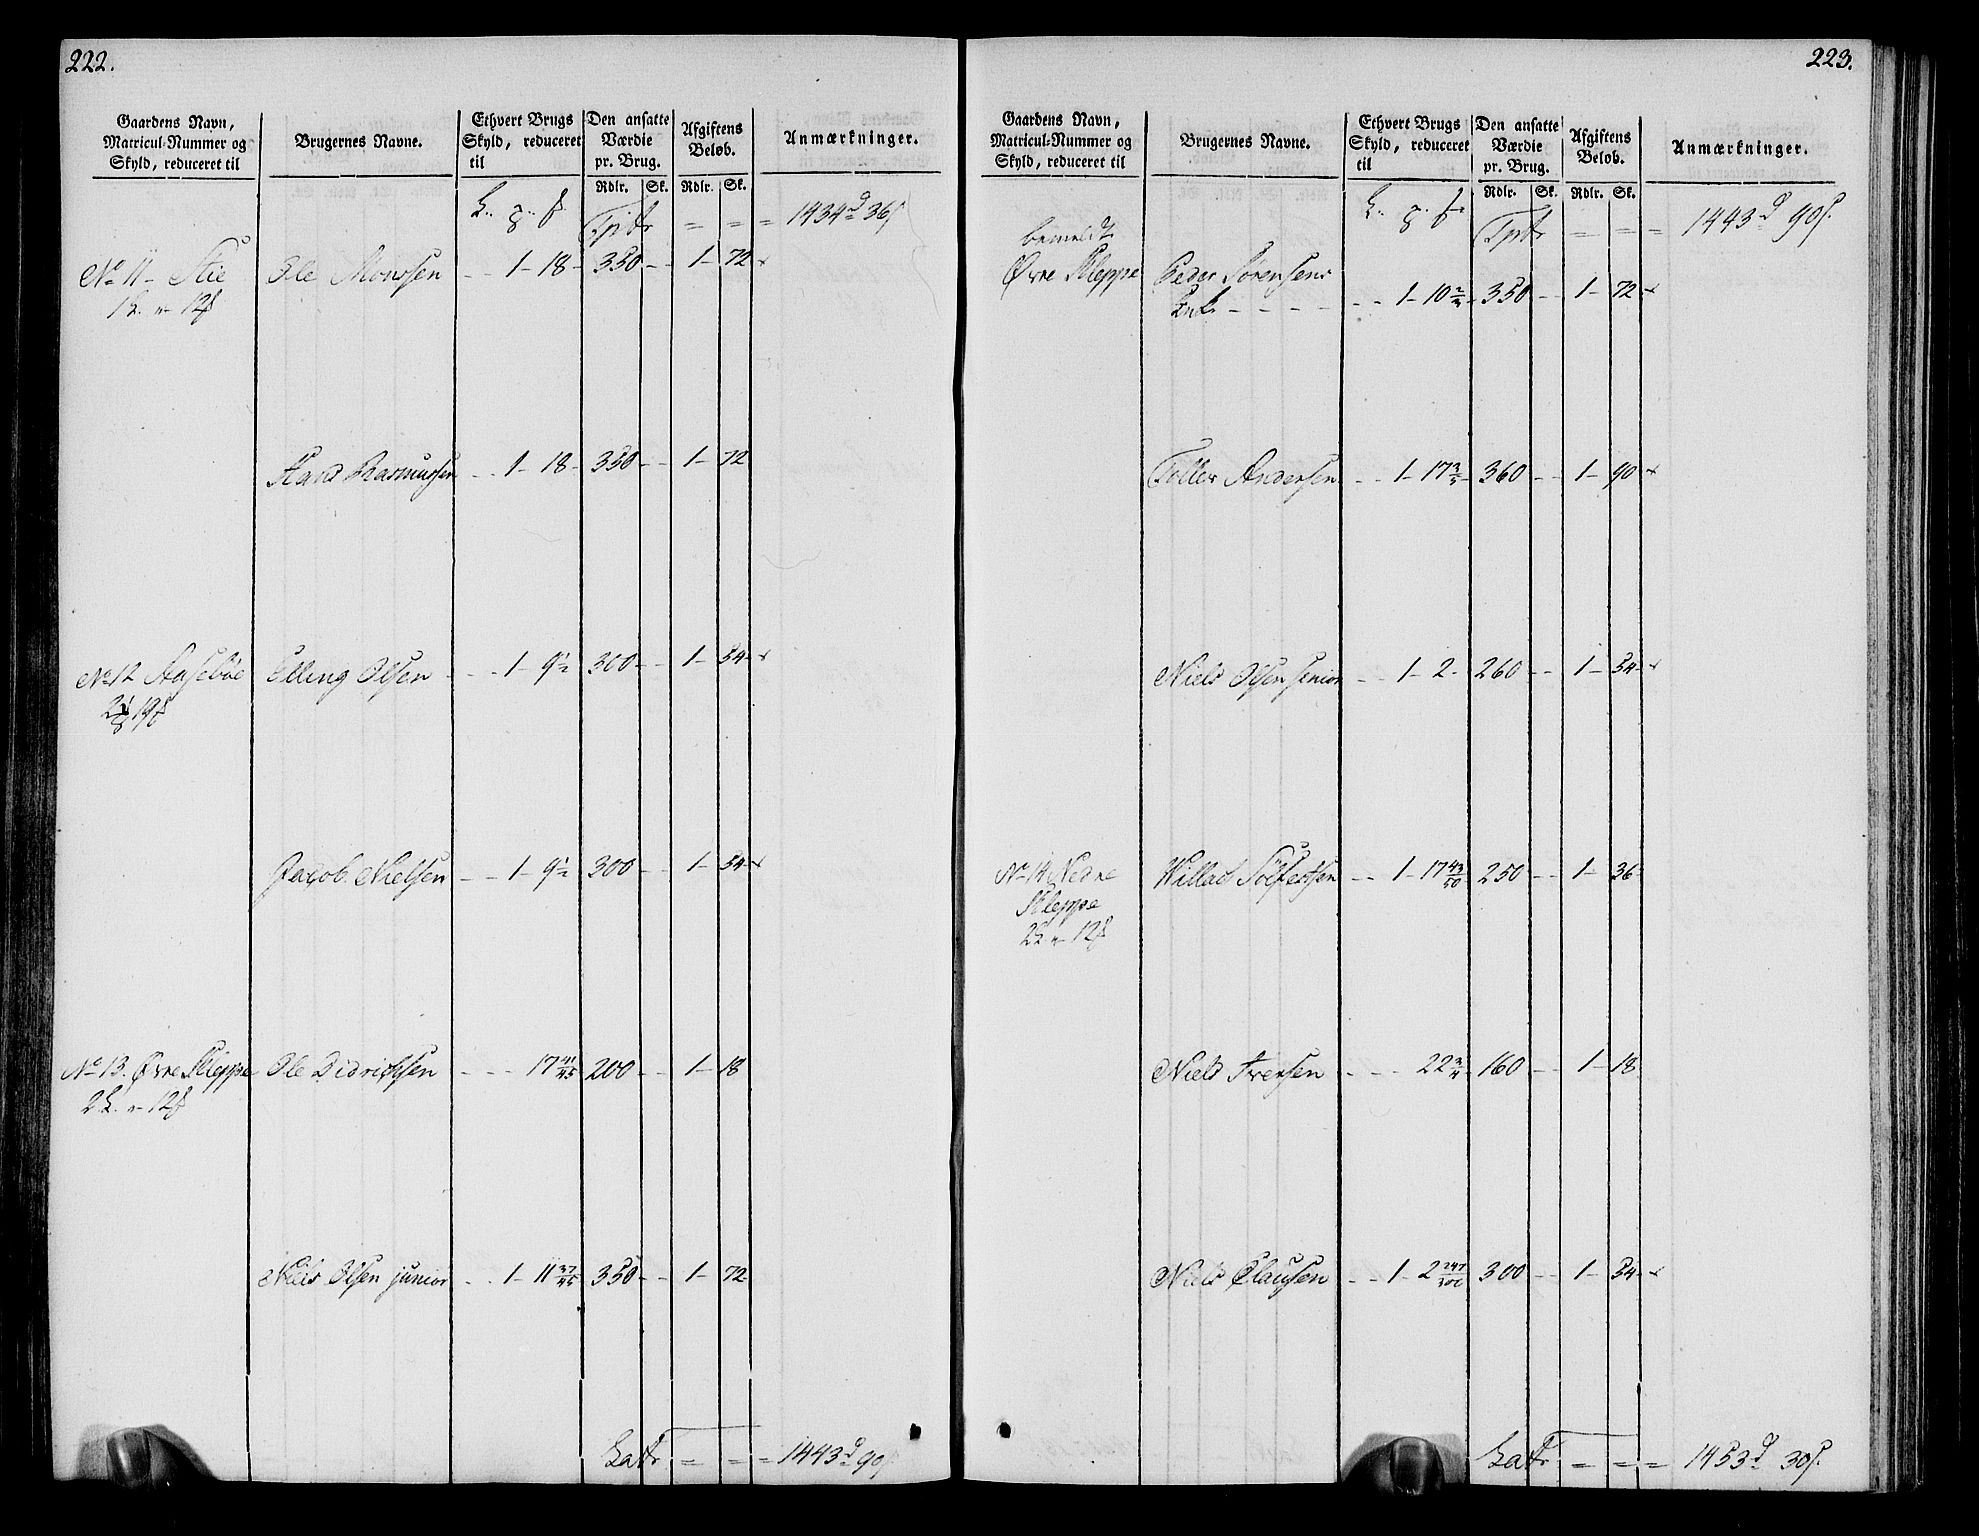 222.
Gaardens Navn, Matricul-Nummer og Skyld, reduceret til | Brugernes Navne. | Ethvert Brugs Skyld, reduceret til | Den ansatte Værdie pr. Brug. | Afgiftens Beløb. | Anmærkninger.
Rdlr. Sk. Rdlr. Sk.
Tprtr = = = 1434d 36s
No 11 - Stie Ole Monsen - - 1 - 18 - 350 - - 1 - 72
1 L. " - 12
Hans Rasmussen - - 1 - 18 - 350 - - 1 - 72
No 12 Aasebøe Elling Olsen - - 1 - 9 1/2 300 - - 1 - 54
Jacob Nielsen - - 1 - 9 1/2 300 - - 1 - 54
No 13. Øvre Kleppe Ole Didrichsen - - - 17 41/45 200 - - 1 - 18
2 L. " - 12
Niels Olsen junior - - 1 - 11 37/45 350 - - 1 - 72
Latr = = = 1443d 90s
223.
Gaardens Navn, Matricul-Nummer og Skyld, reduceret til | Brugernes Navne. | Ethvert Brugs Skyld, reduceret til | Den ansatte Værdie pr. Brug. | Afgiftens Beløb. | Anmærkninger.
Rdlr. Sk. Rdlr. Sk.
Tprtr = = = 1443d 90s.
bemeldt
Øvre Kleppe Peder Sørensens
Enke - - - - - - 1 - 10 350 - - 1 - 72
Toller Andersen - - 1 - 17 3/5 360 - - 1 - 90
Niels Olsen senior - - 1 - 2 - 260 - - 1 - 54
No 14 Nedre Willas Sølfestsen - - 1 - 17 43/50 250 - - 1 - 36
Kleppe
2 L. " - 12
Niels Iversen - - - 22 3/4 160 - - 1 - 18
Niels Clausen - - 1 - 2 300 - - 1 - 54
Latr = = = 1453d 30s.